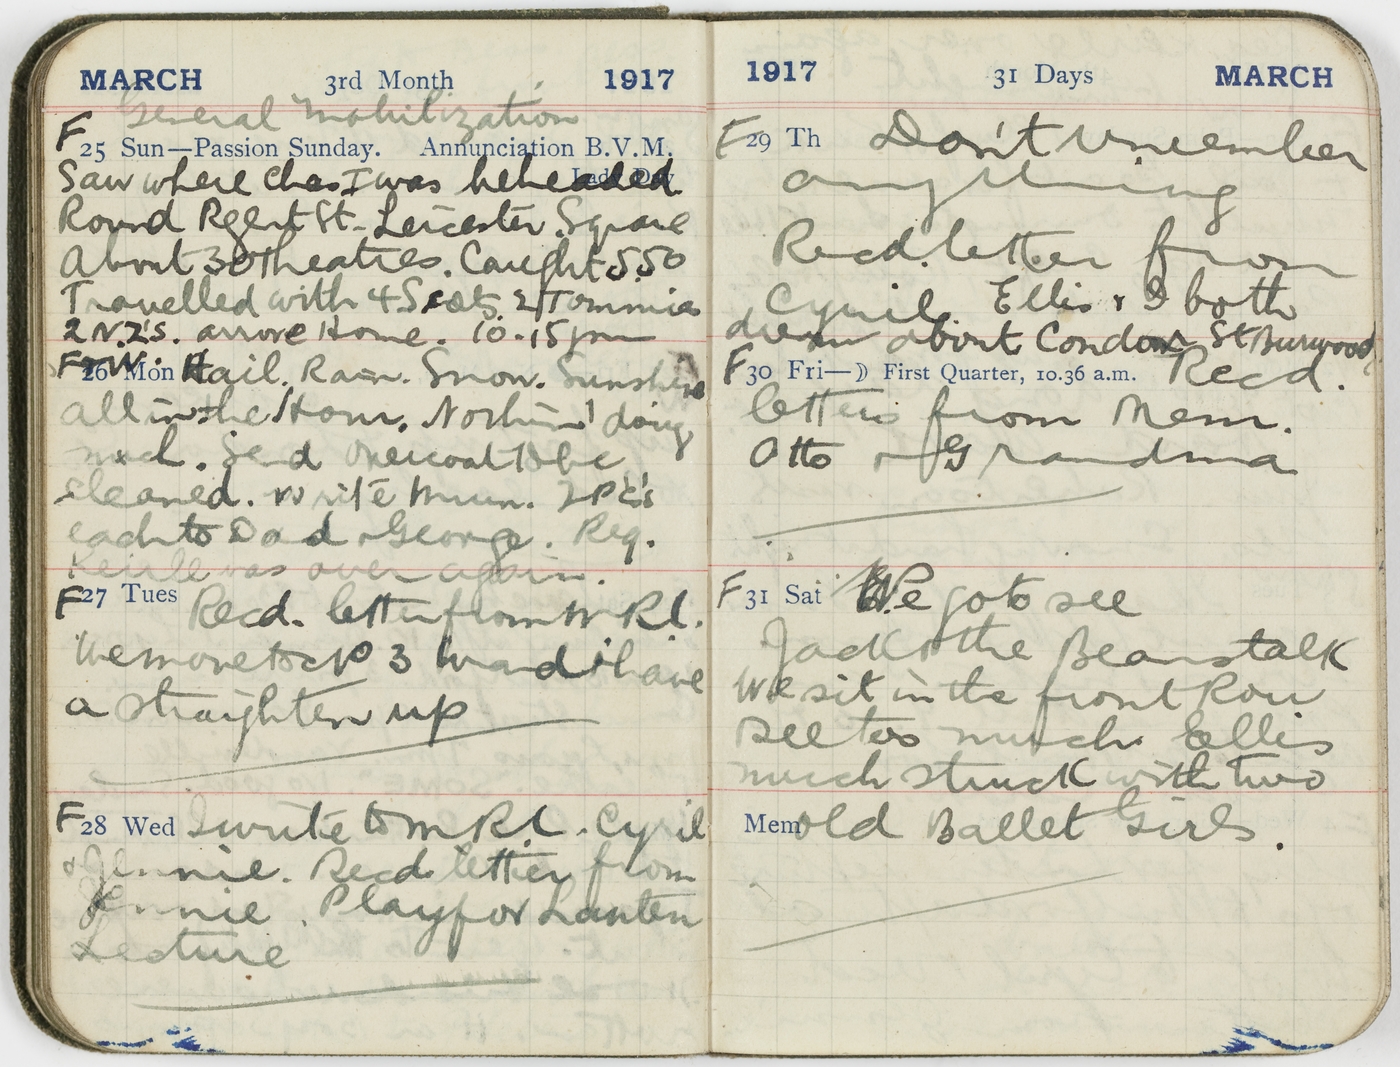 MARCH 3rd Month 1917
General Mobilization
F 25 Sun—Passion Sunday. Annunciation B.V.M.
Lady Day
Saw where Chas I was beheaded
Round Regent St. Leicester Square
About 30 Theatres. Caught 5.50
Travelled with 4 Scots 2 Tommies
2 N.Z's. arrove Home. 10.15 pm
F 26 Mon Hail. Rain. Snow. Sunshine
all in the Hour. Nothin' doing
much. Send Overcoat to be
cleaned. Write Mum. 2 PC's
each to Dad & George. Reg.
was over again.
F 27 Tues Recd. letter from W Rl.
We move to CP 3 ward & have
a straighten up
F 28 Wed I write to M RL. Cyril
& Jennie. Recd letter from
Jennie. Play for Lanten
Lecture
1917 31 Days MARCH
F 29 Th Don't remember
anything
Recd. letter from
Cyril. Ellis & I both
dream about Condor St Burwood
F 30 Fri—☽ First Quarter, 10.36 a.m. Recd.
letters from Mem.
Otto & Grandma
F 31 Sat We go to see
Jack & the Beanstalk
We sit in the front Row
See too much. Ellis
much struck with two
Mem old Ballet Girls.